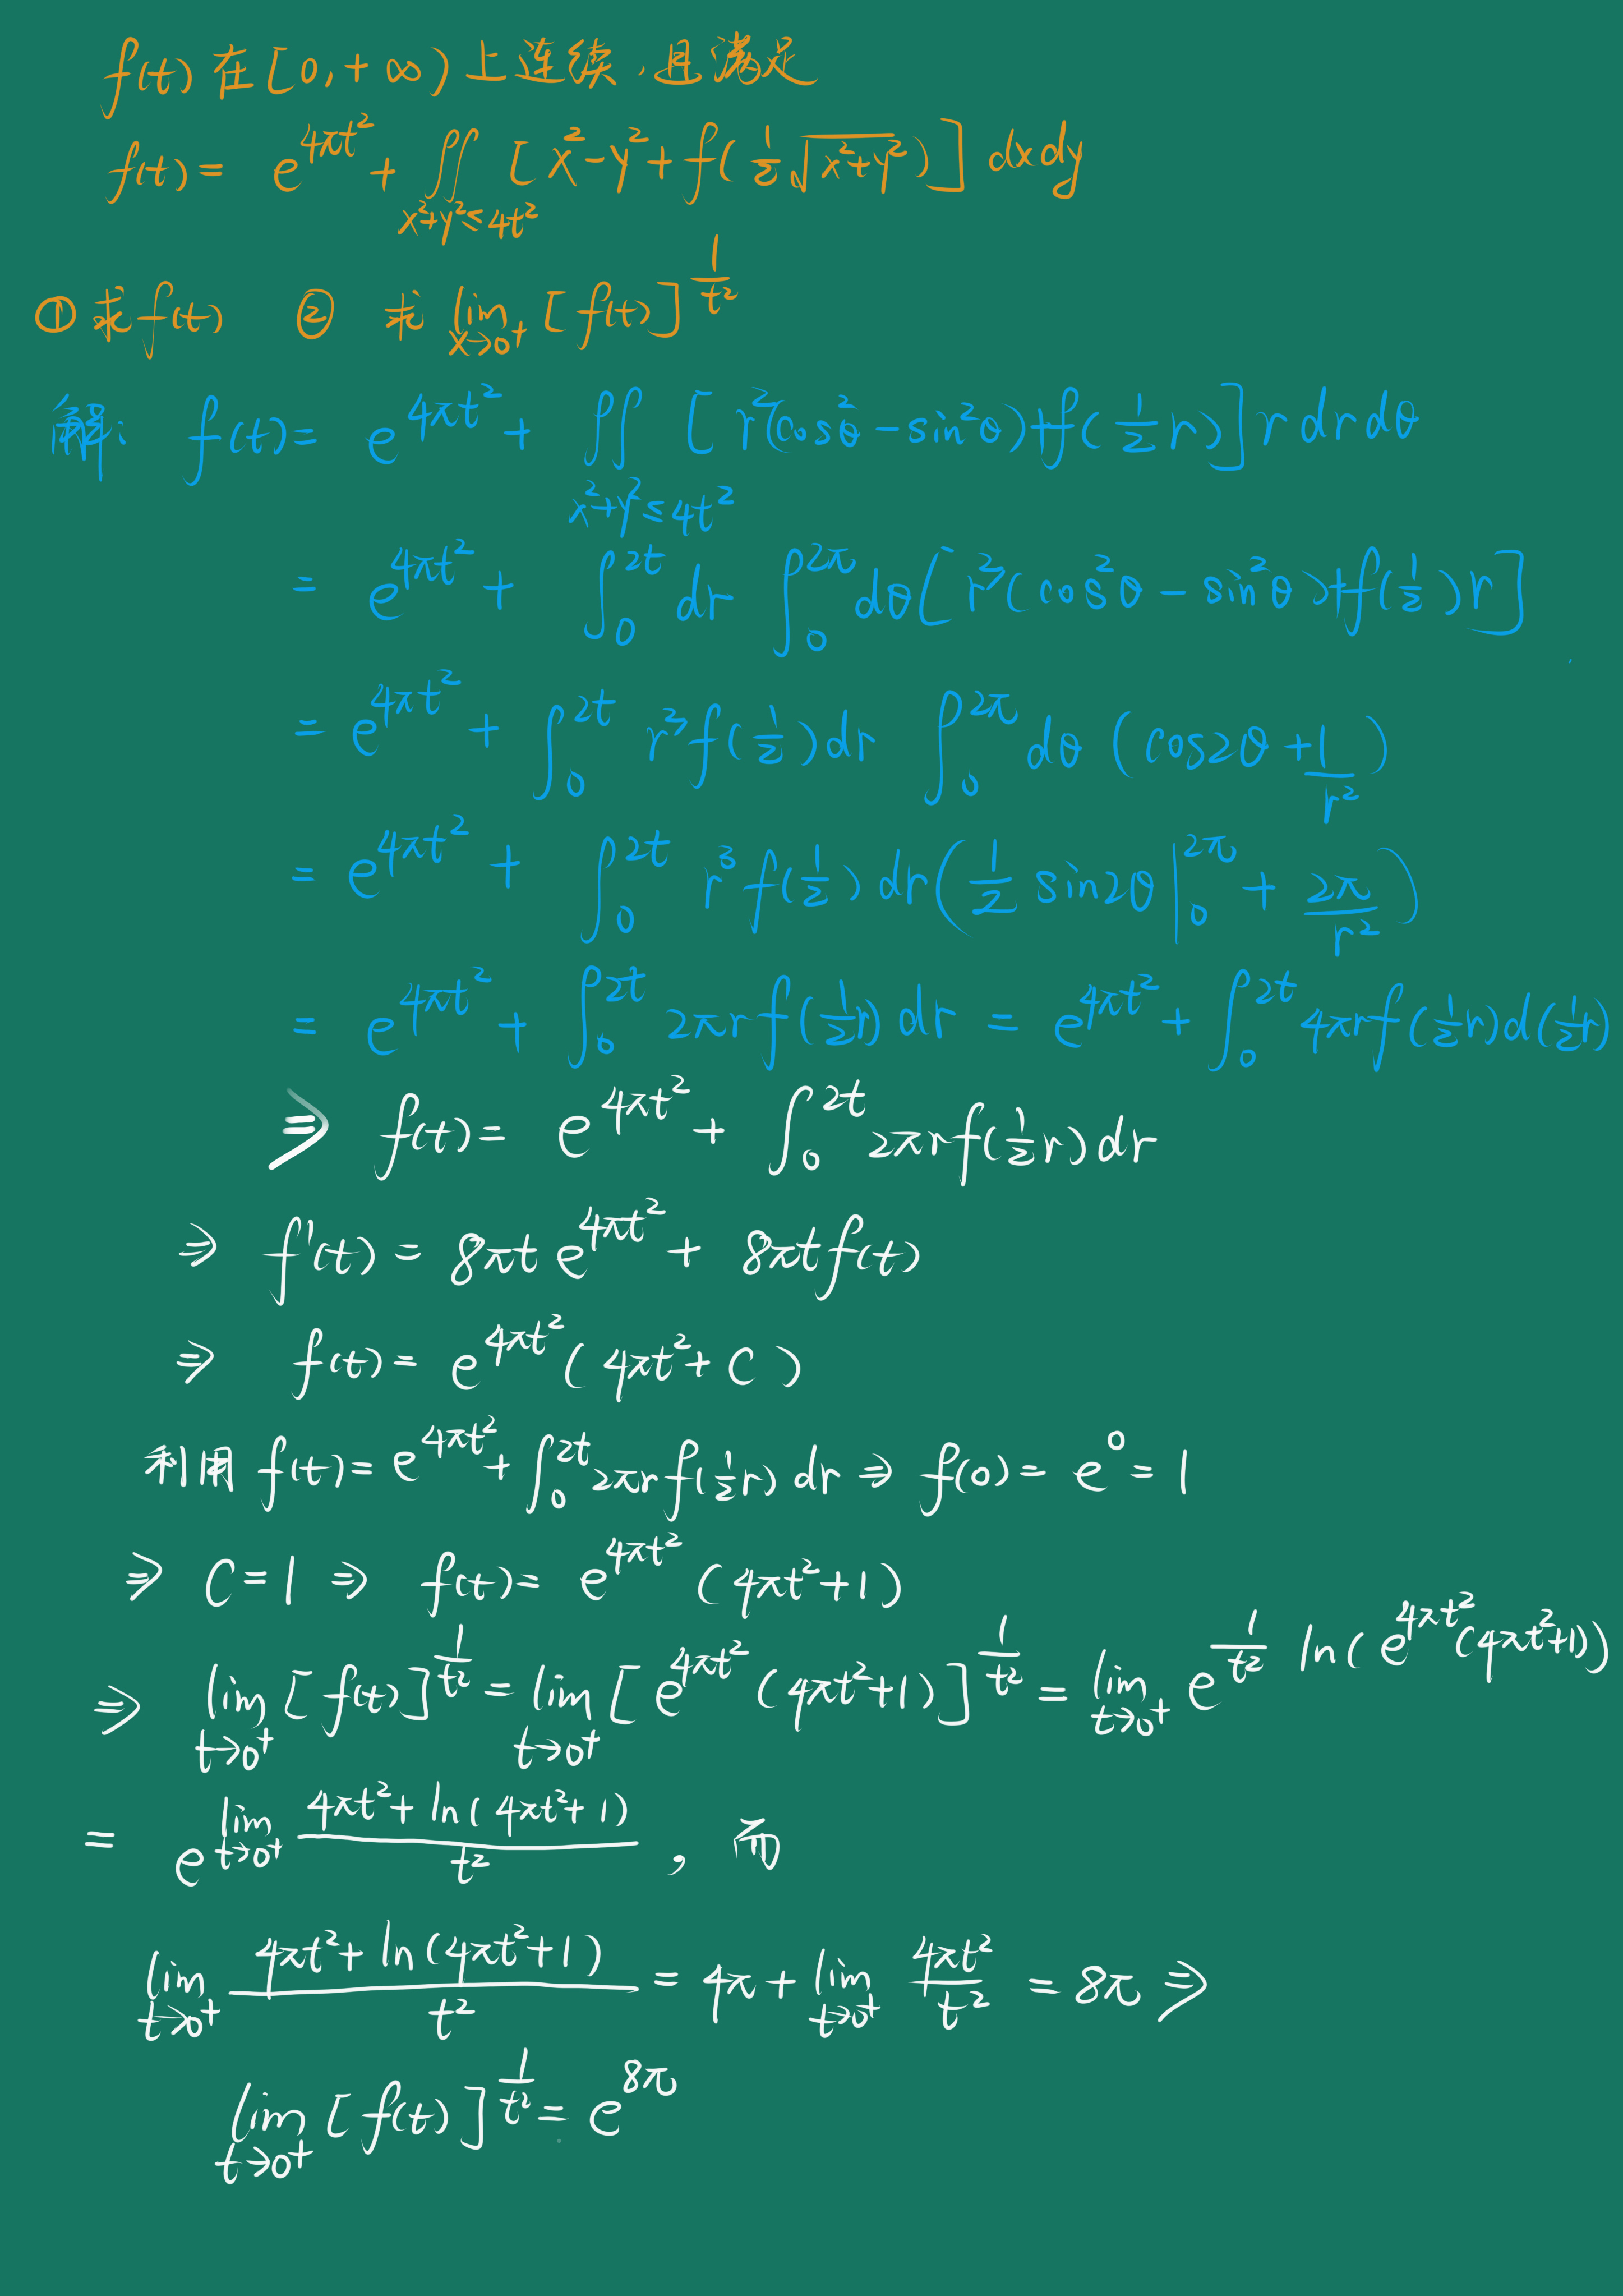 f(t) 在 [0,+∞) 上连续,且满足
f(t) = e^{4πt^2} + ∬_{x^2+y^2≤4t^2} [x^2-y^2+f(\frac{1}{2}\sqrt{x^2+y^2})] dxdy
① 求 f(t) ② 求 \lim_{x→0^+} [f(t)]^{\frac{1}{t^2}}
解: f(t) = e^{4πt^2} + ∬_{x^2+y^2≤4t^2} [r^2(cos^2θ-sin^2θ)+f(\frac{1}{2}r)] r dr dθ
= e^{4πt^2} + ∫_0^{2t} dr ∫_0^{2π} dθ [r^2(cos^2θ-sin^2θ)+f(\frac{1}{2})r]
= e^{4πt^2} + ∫_0^{2t} r^2 f(\frac{1}{2}) dr ∫_0^{2π} dθ (cos2θ+\frac{1}{r^2})
= e^{4πt^2} + ∫_0^{2t} r^3 f(\frac{1}{2}) dr (\frac{1}{2} sin2θ|_0^{2π} + \frac{2π}{r^2})
= e^{4πt^2} + ∫_0^{2t} 2πr f(\frac{1}{2}r) dr = e^{4πt^2} + ∫_0^{2t} 4πr f(\frac{1}{2}r) d(\frac{1}{2}r)
⇒ f(t) = e^{4πt^2} + ∫_0^{2t} 2πr f(\frac{1}{2}r) dr
⇒ f'(t) = 8πt e^{4πt^2} + 8πt f(t)
⇒ f(t) = e^{4πt^2} (4πt^2+C)
利用 f(t) = e^{4πt^2} + ∫_0^{2t} 2πr f(\frac{1}{2}r) dr ⇒ f(0) = e^0 = 1
⇒ C=1 ⇒ f(t) = e^{4πt^2} (4πt^2+1)
⇒ \lim_{t→0^+} [f(t)]^{\frac{1}{t^2}} = \lim_{t→0^+} [e^{4πt^2} (4πt^2+1)]^{\frac{1}{t^2}} = \lim_{t→0^+} e^{\frac{1}{t^2} ln(e^{4πt^2}(4πt^2+1))}
= e^{\lim_{t→0^+} \frac{4πt^2+ln(4πt^2+1)}{t^2}} , 而
\lim_{t→0^+} \frac{4πt^2+ln(4πt^2+1)}{t^2} = 4π + \lim_{t→0^+} \frac{4πt^2}{t^2} = 8π ⇒
\lim_{t→0^+} [f(t)]^{\frac{1}{t^2}} = e^{8π}